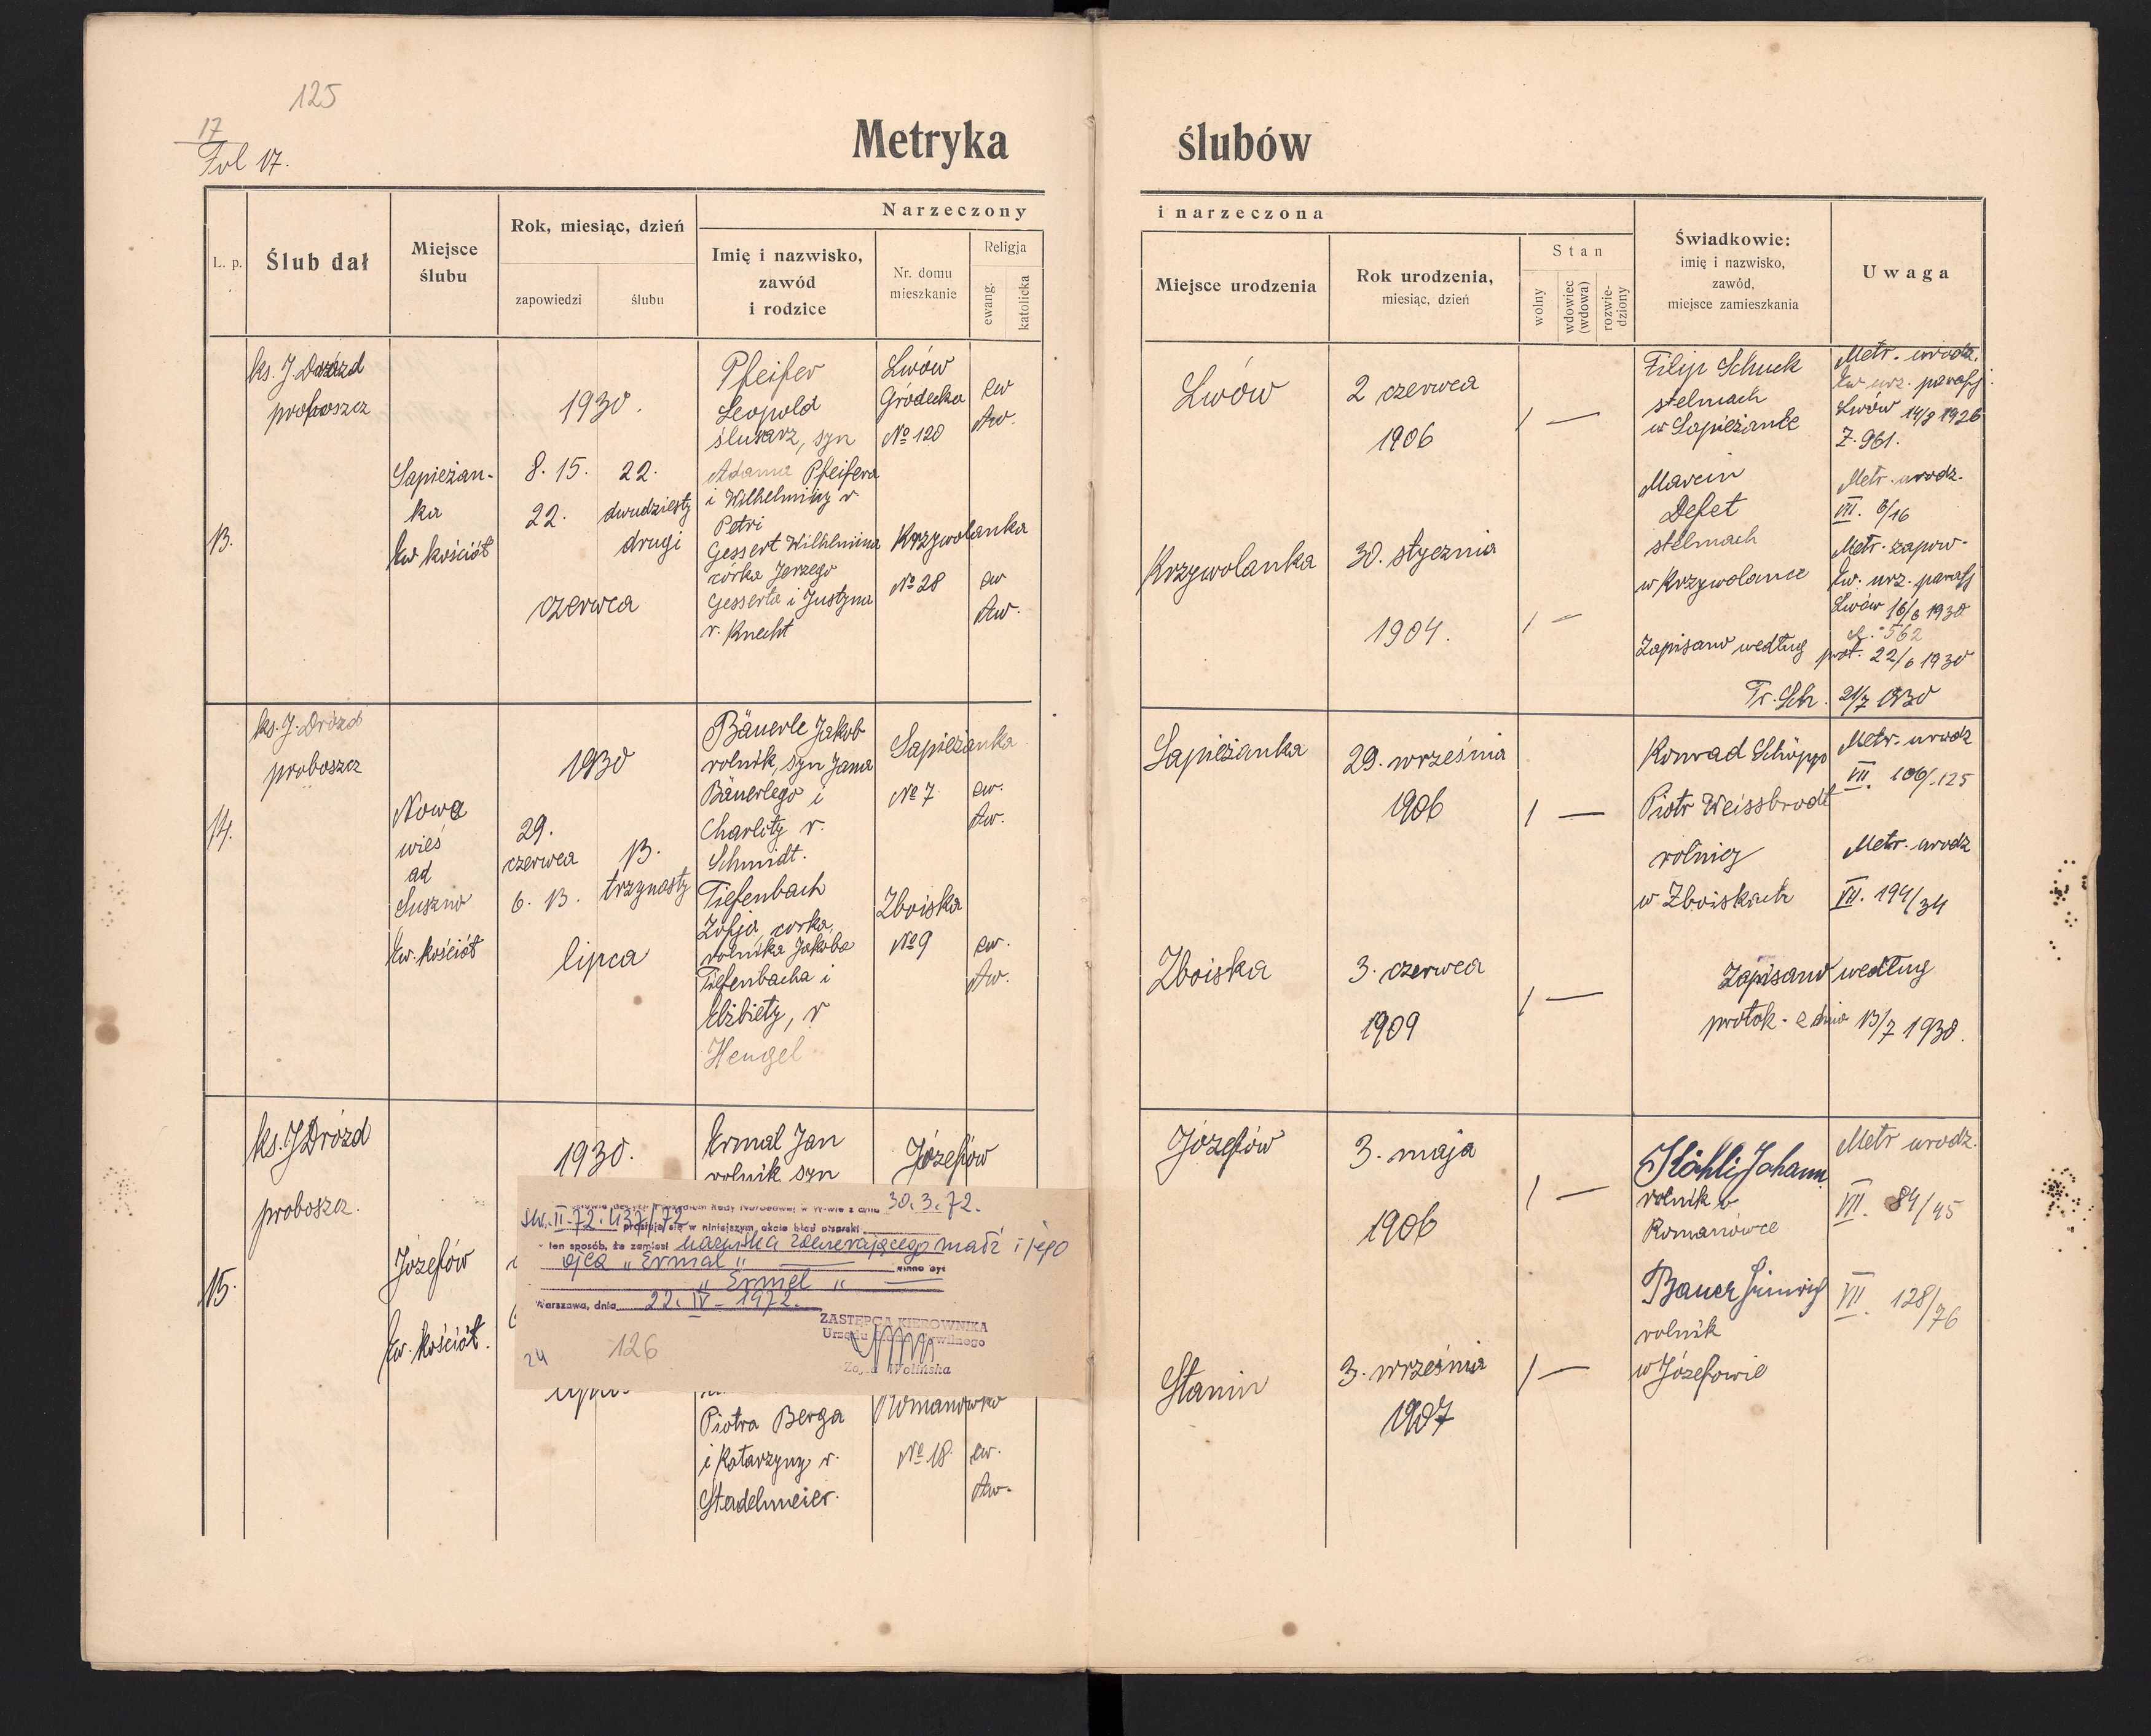 125
17
Fol 17.
Metryka ślubów
Narzeczony i narzeczona
L. p.
Ślub dał
Miejsce
ślubu
Rok, miesiąc, dzień
zapowiedzi
ślubu
Imię i nazwisko,
zawód
i rodzice
Nr. domu
mieszkanie
Religja
ewang.
katolicka
Miejsce urodzenia
Rok urodzenia,
miesiąc, dzień
Stan
wolny
wdowiec
(wdowa)
rozwie-
dziony
Świadkowie:
imię i nazwisko,
zawód,
miejsce zamieszkania
Uwaga
13.
ks. J. Drozd
proboszcz
Sapieżan-
ka
Ew kościół
1930.
8. 15.
22.
22.
dwudziesty
drugi
czerwca
Pfeifer
Leopold
ślusarz, syn
Adama Pfeifera
i Wilhelminy r.
Petri
Gessert Wilhelmina
córka Jerzego
Gesserta i Justyna
r. Knecht
Lwów
Gródecka
No 120
ew
Aw.
Krzywolanka
No 28
ew
Aw.
Lwów
2 czerwca
1906
1 —
Krzywolanka
30. stycznia
1904.
1 —
Filip Schuck
stelmach
w Sapieżance
Marcin
Defet
stelmach
w Krzywolance
Zapisano według prot. 22/6 1930
Tr. Sch. 21/7 1930
Metr. urodz.
Ew. urz. parafj.
Lwów 14/8 1926
Z. 961.
Metr. urodz.
VII. 6/16
Metr. zapow.
Ew. urz. parafj
Lwów 16/6 1930
L. 562
14.
ks. J. Drozd
proboszcz
Nowa
wieś
ad
Suszno
Ew. kościół
1930
29.
czerwca
6. 13.
13.
trzynasty
lipca
Bäuerle Jakob
rolnik, syn Jana
Bäuerlego i
Charloty r.
Schmidt.
Tiefenbach
Zofja, corka
rolnika Jakoba
Tiefenbacha i
Elżbiety, r
Hengel
Sapieżanka
No 7
ew.
Aw.
Zboiska
No 9
ew.
Aw.
Sapieżanka
29. września
1906
1 —
Zboiska
3. czerwca
1909
1 —
Konrad Schöpp
Piotr Weissbrodt
rolnicy
w Zboiskach
Metr. urodz
VII. 106/125
Metr. urodz
VII. 194/34
Zapisano według
protok. z dnia 13/7 1930.
15.
ks. J Drozd
proboszcz.
Józefów
Ew. kościół.
1930.
Ermal Jan
rolnik syn
Józefów
30.3.72.
II-72.437/72 prostuje się w niniejszym akcie błąd pisarski
ten sposób, że zamiast nazwiska zawierającego małż i jego
ojca „Ermal" winno być
„Ermel"
Warszawa, dnia 22. IV - 1972.
ZASTĘPCA KIEROWNIKA
24
126
Zofia Wolińska
Piotra Berga
i Katarzyny r.
Stadelmeier.
Romanówka
No 18.
ew.
Aw.
Józefów
3. maja
1906
1 —
Stanin
3. września
1907
1 —
Köhli Johann
rolnik w
Romanówce
Bauer Heinrich
rolnik
w Józefowie
Metr urodz.
VII. 84/45
VII. 128/76